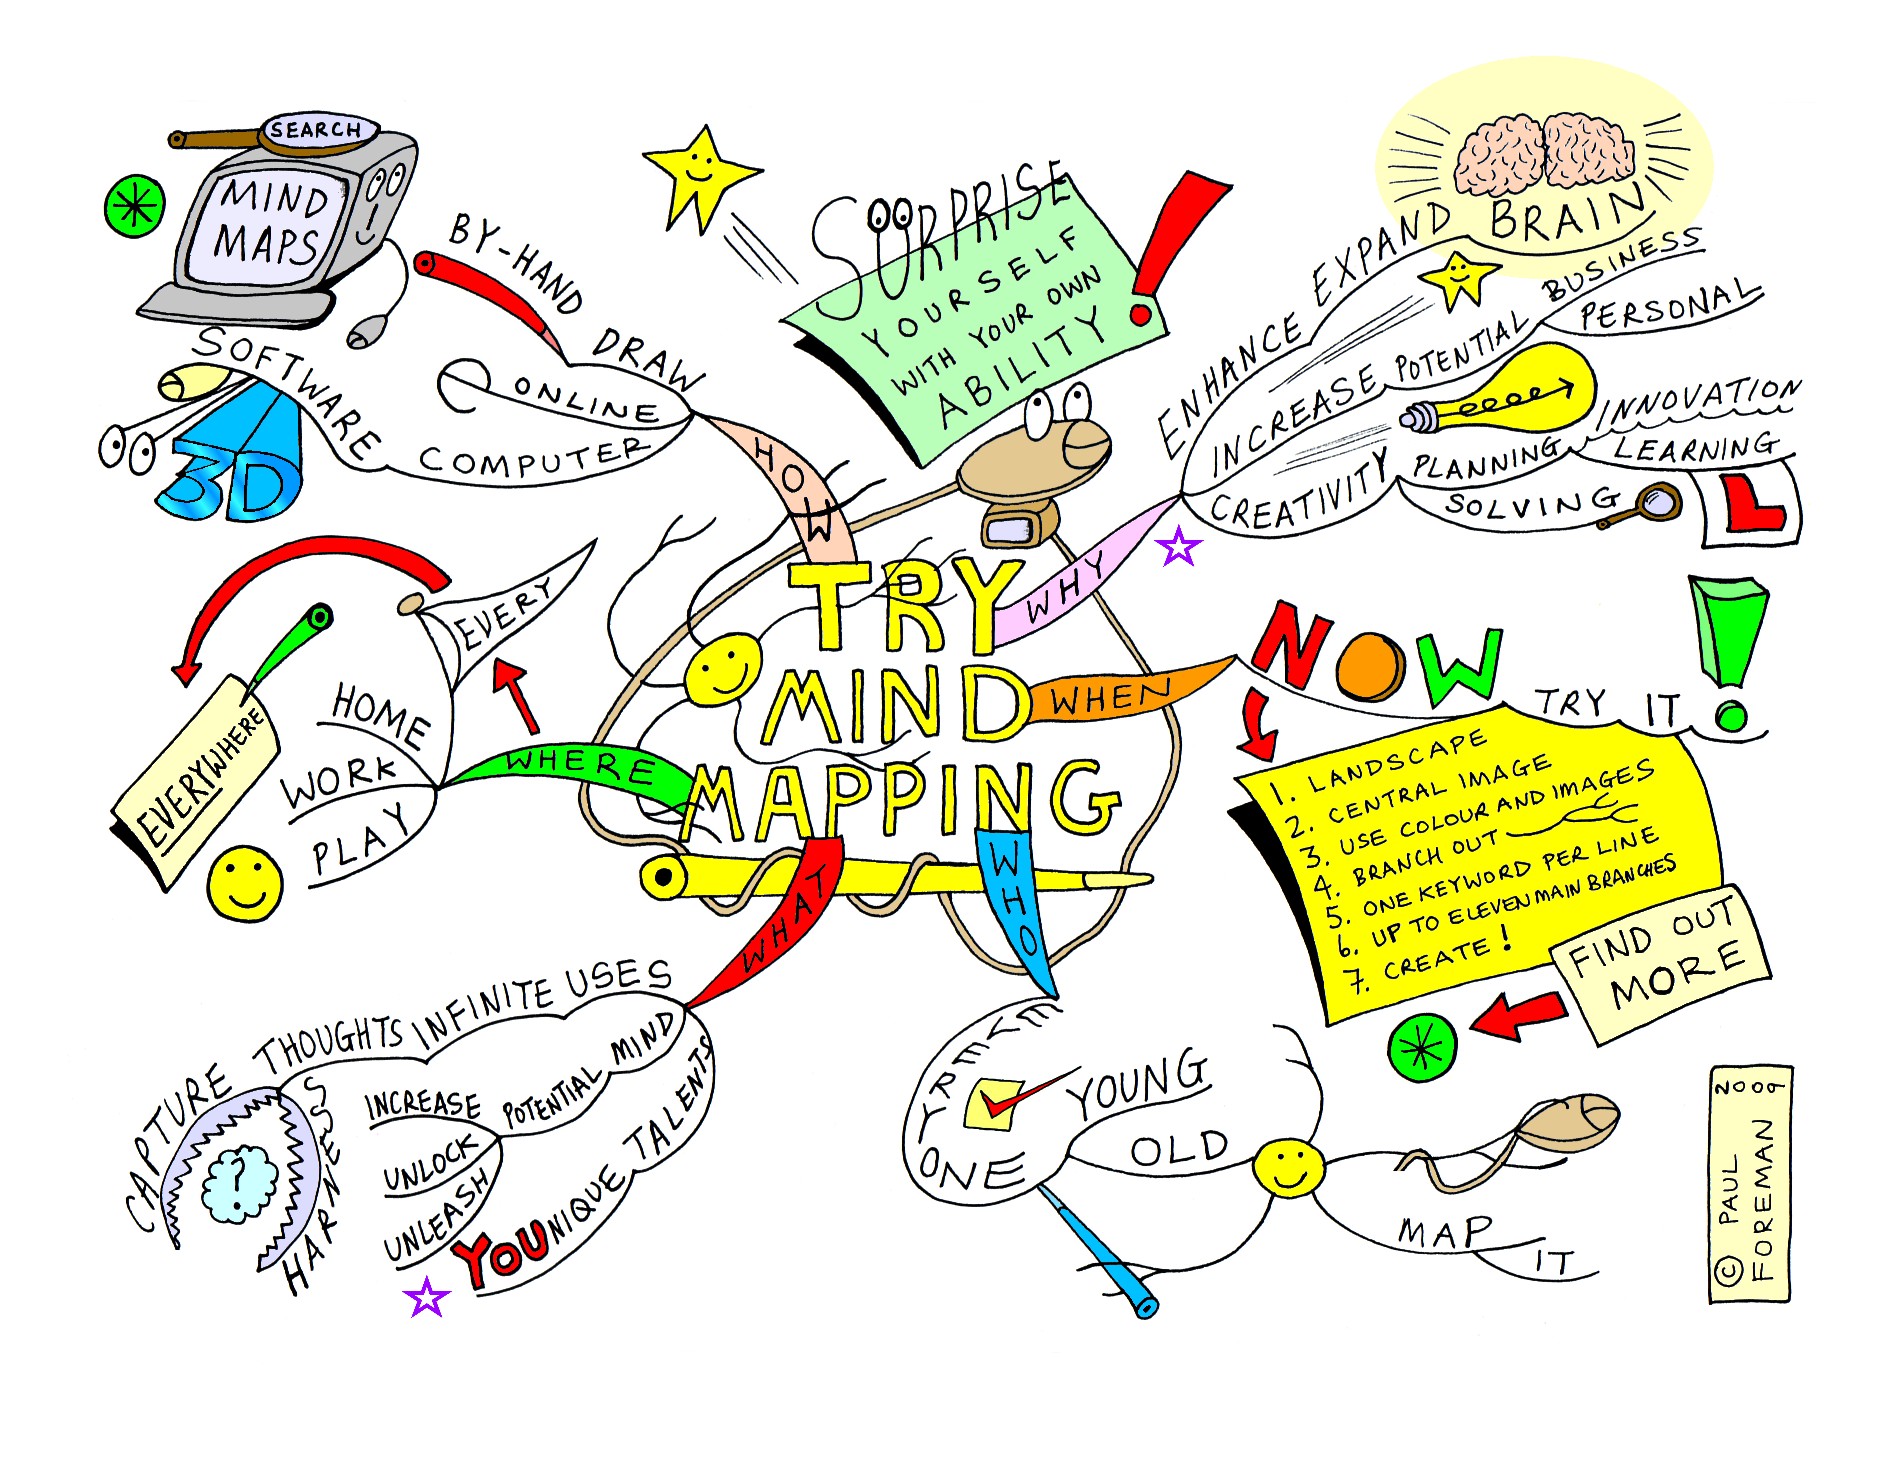 SEARCH
MIND
MAPS
BY-HAND
DRAW
ONLINE
SOFTWARE
COMPUTER
3D
HOW
SURPRISE
YOURSELF
WITH YOUR OWN
ABILITY
!
ENHANCE EXPAND BRAIN
INCREASE POTENTIAL BUSINESS
PERSONAL
CREATIVITY PLANNING INNOVATION
LEARNING
SOLVING
L
WHY
TRY
MIND
MAPPING
WHEN
NOW TRY IT !
1. LANDSCAPE
2. CENTRAL IMAGE
3. USE COLOUR AND IMAGES
4. BRANCH OUT
5. ONE KEYWORD PER LINE
6. UP TO ELEVEN MAIN BRANCHES
7. CREATE!
FIND OUT
MORE
EVERY
HOME
WORK
PLAY
WHERE
EVERYWHERE
WHAT
INFINITE USES
CAPTURE THOUGHTS
HARNESS
?
MIND
POTENTIAL
INCREASE
UNLOCK
UNLEASH
YOUNIQUE TALENTS
WHO
EVERYONE
YOUNG
OLD
MAP
IT
© PAUL 2009
FOREMAN